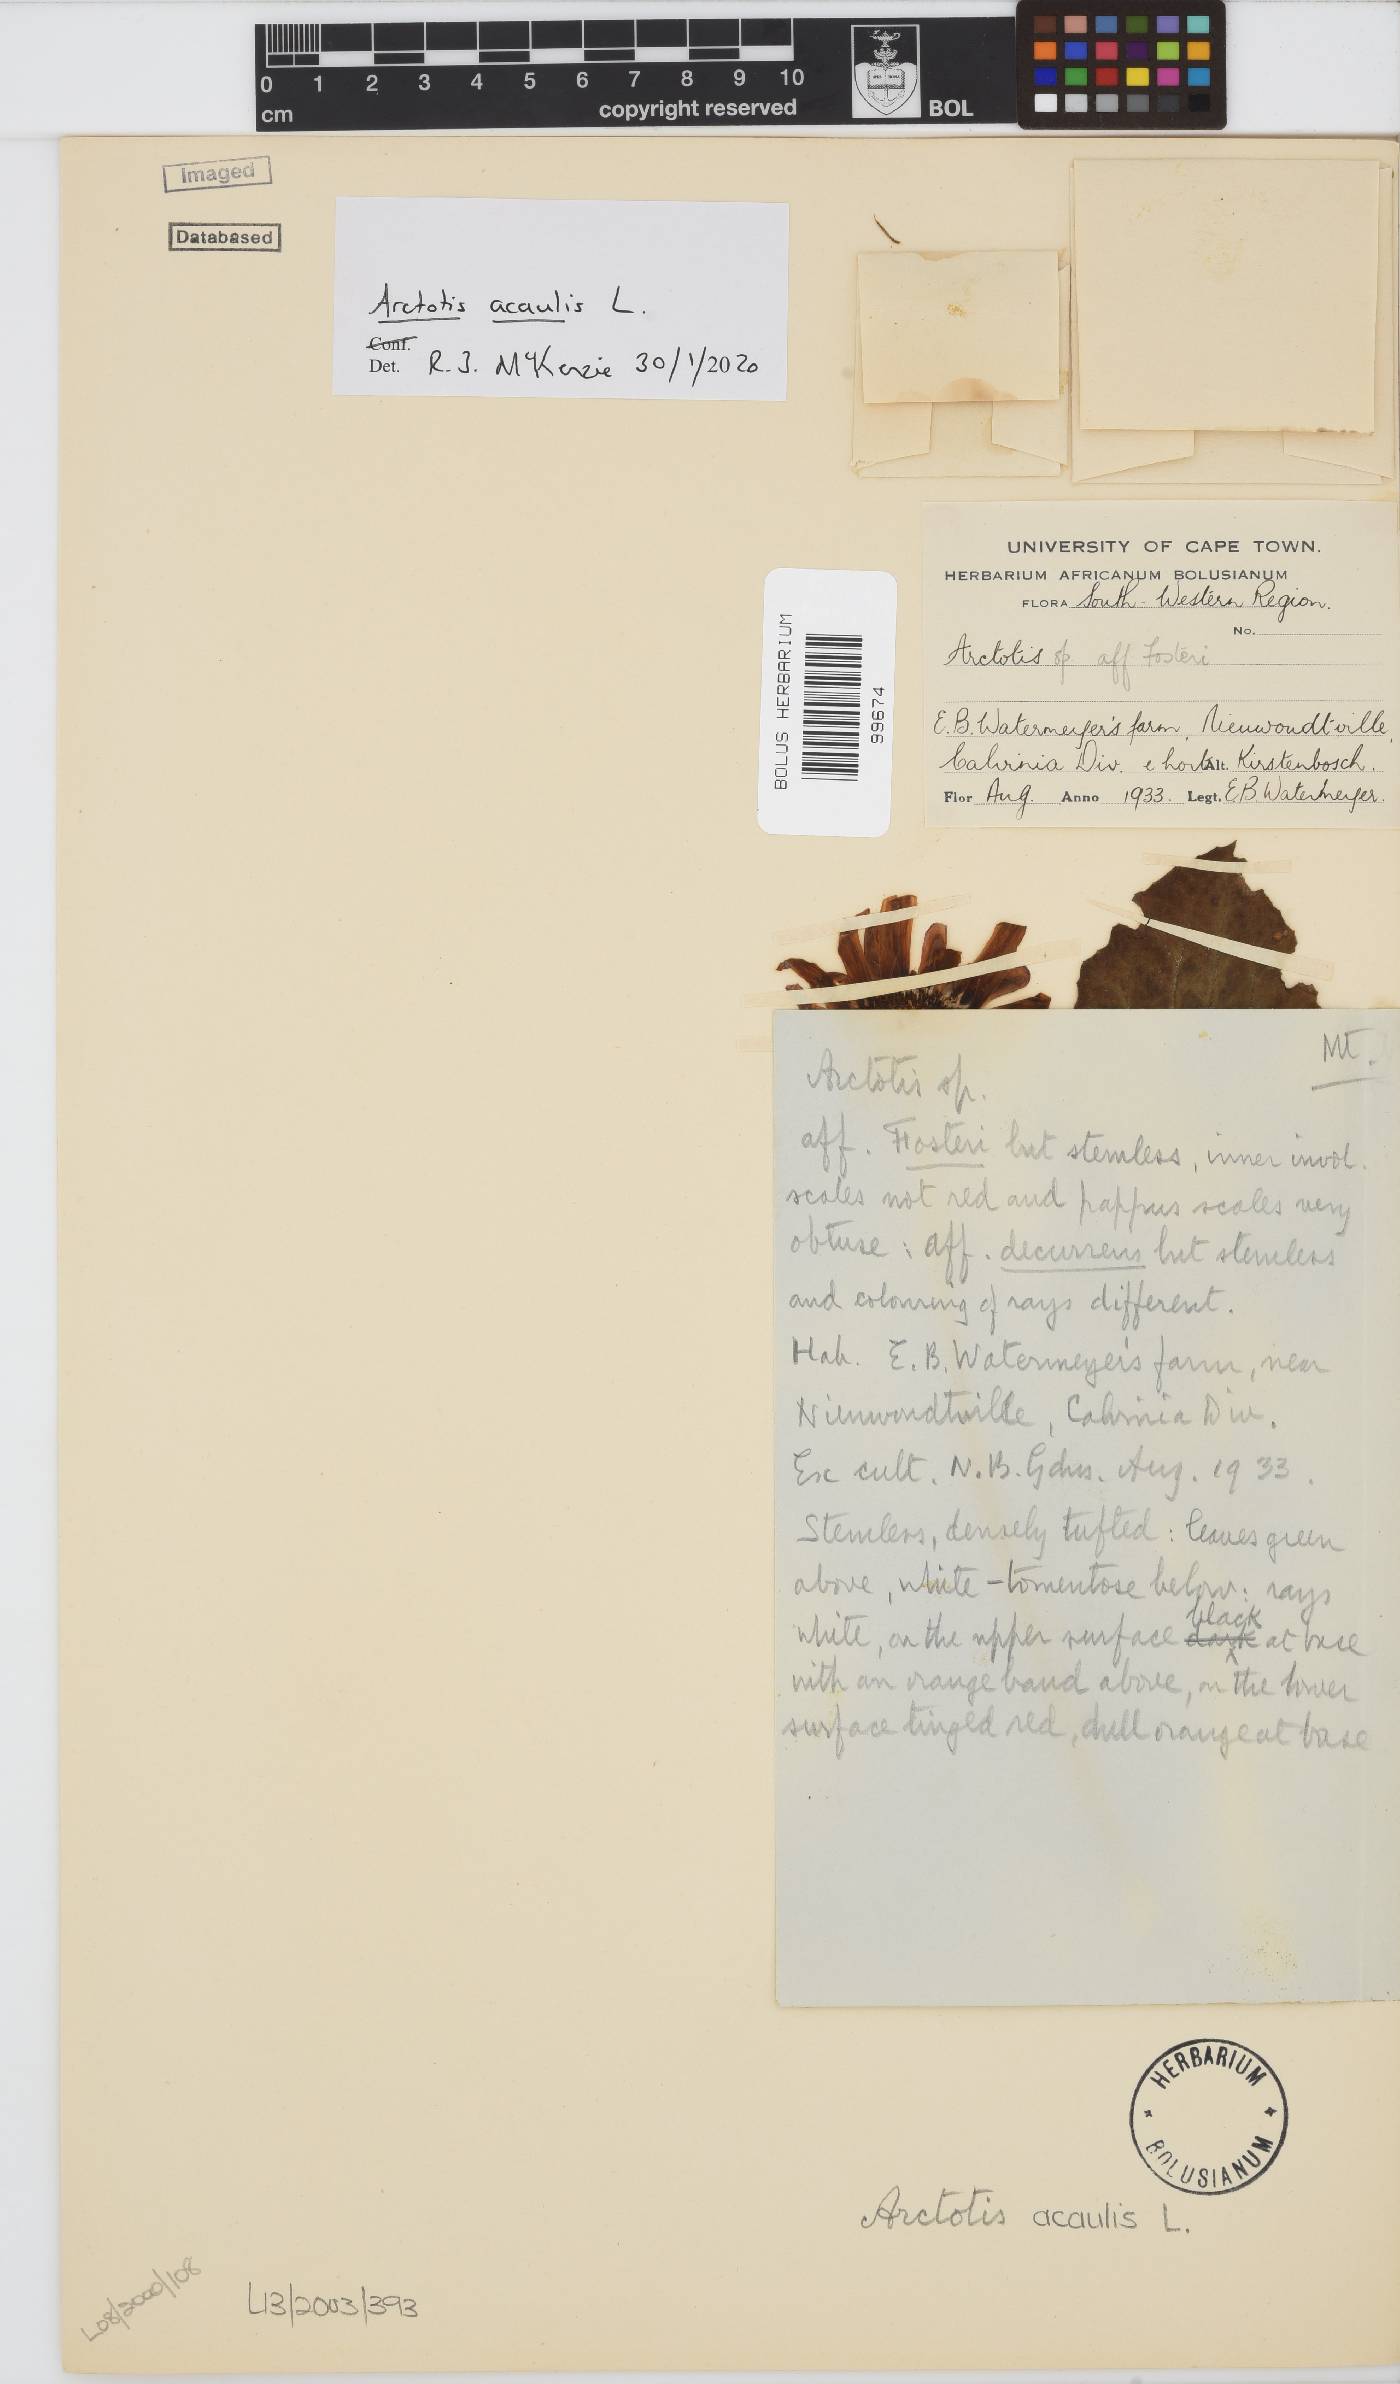 0 1 2 3 4 5 6 7 8 9 10
cm
copyright reserved
BOL
Imaged
Databased
Arctotis acaulis L.
Conf.
Det. R. J. McKenzie 30/1/2020
UNIVERSITY OF CAPE TOWN.
HERBARIUM AFRICANUM BOLUSIANUM
FLORA South-Western Region.
No.
Arctotis sp aff Fosteri
E.B. Watermeyer's farm, Nieuwoudtville,
Calvinia Div. e hort. Alt. Kirstenbosch.
Flor Aug. Anno 1933. Legt. E.B. Watermeyer.
BOLUS HERBARIUM
99674
Mt.
Arctotis sp.
aff. Fosteri but stemless, inner invol.
scales not red and pappus scales very
obtuse : aff. decurrens but stemless
and colouring of rays different.
Hab. E. B. Watermeyer's farm, near
Nieuwoudtville, Calvinia Div.
Ex cult. N. B. Gdns. Aug. 1933.
Stemless, densely tufted : leaves green
above, white-tomentose below: rays
white, on the upper surface dark black at base
with an orange band above, on the lower
surface tinged red, dull orange at base
HERBARIUM
BOLUSIANUM
Arctotis acaulis L.
L08/2000/108
L13/2003/393